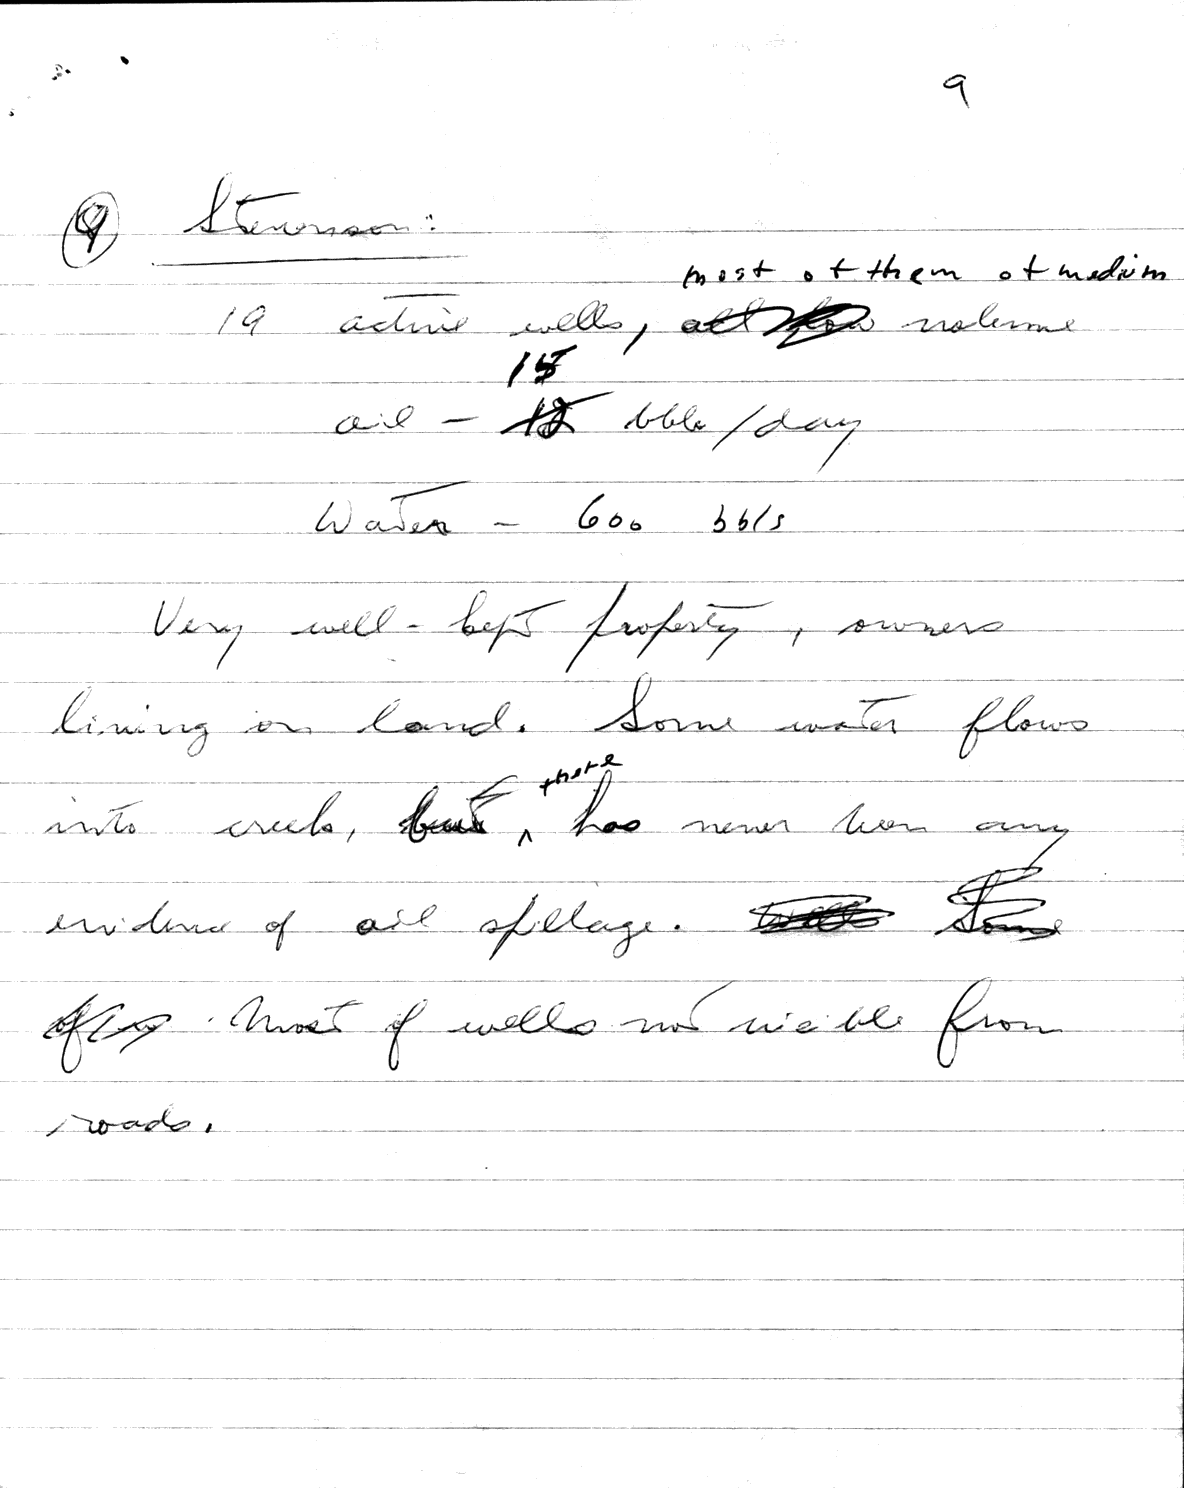 9
9 Stevenson:
most of them of medium
19 active wells, all low volume
15
oil - 12 bbls/day
Water - 600 bbls
Very well-kept property, owners
living on land. Some water flows
there
into creek, but has never been any
evidence of oil spillage. Wells Some
of Most of wells not visible from
roads.